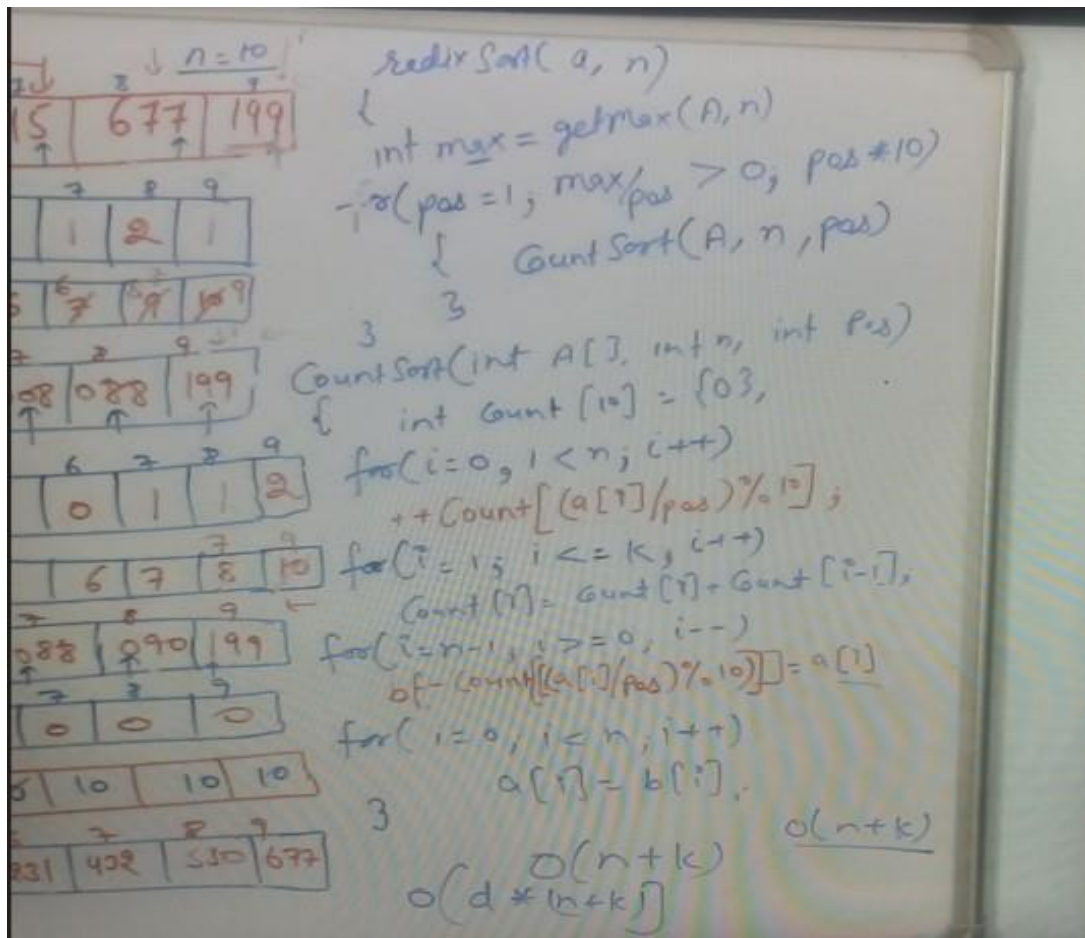 n=10
8 9
15 677 199
7 8 9
1 2 1
7 8 9
08 088 199
6 7 8 9
0 1 1 2
7 9
6 7 8 10
7 8 9
088 090 199
7 8 9
0 0 0
10 10 10
7 8 9
231 432 530 677
radix Sort( a, n)
{
int max = getmax(A,n)
r(pos=1; max/pos > 0; pos*10)
{ Count Sort(A, n, pos)
}
}
Count Sort(int A[], int n, int Pos)
{ int Count [10] = {0},
for(i=0, i<n; i++)
++Count[(a[i]/pos)%10];
for(i=1; i<=k, i++)
Count[i]= Count[i]+Count[i-1];
for(i=n-1, i>=0, i--)
Count[(a[i]/pos)%10)]]=a[i]
for( i=0; i<n; i++)
a[i]=b[i].
}
O(n+k)
O(n+k)
O(d*(n+k)]